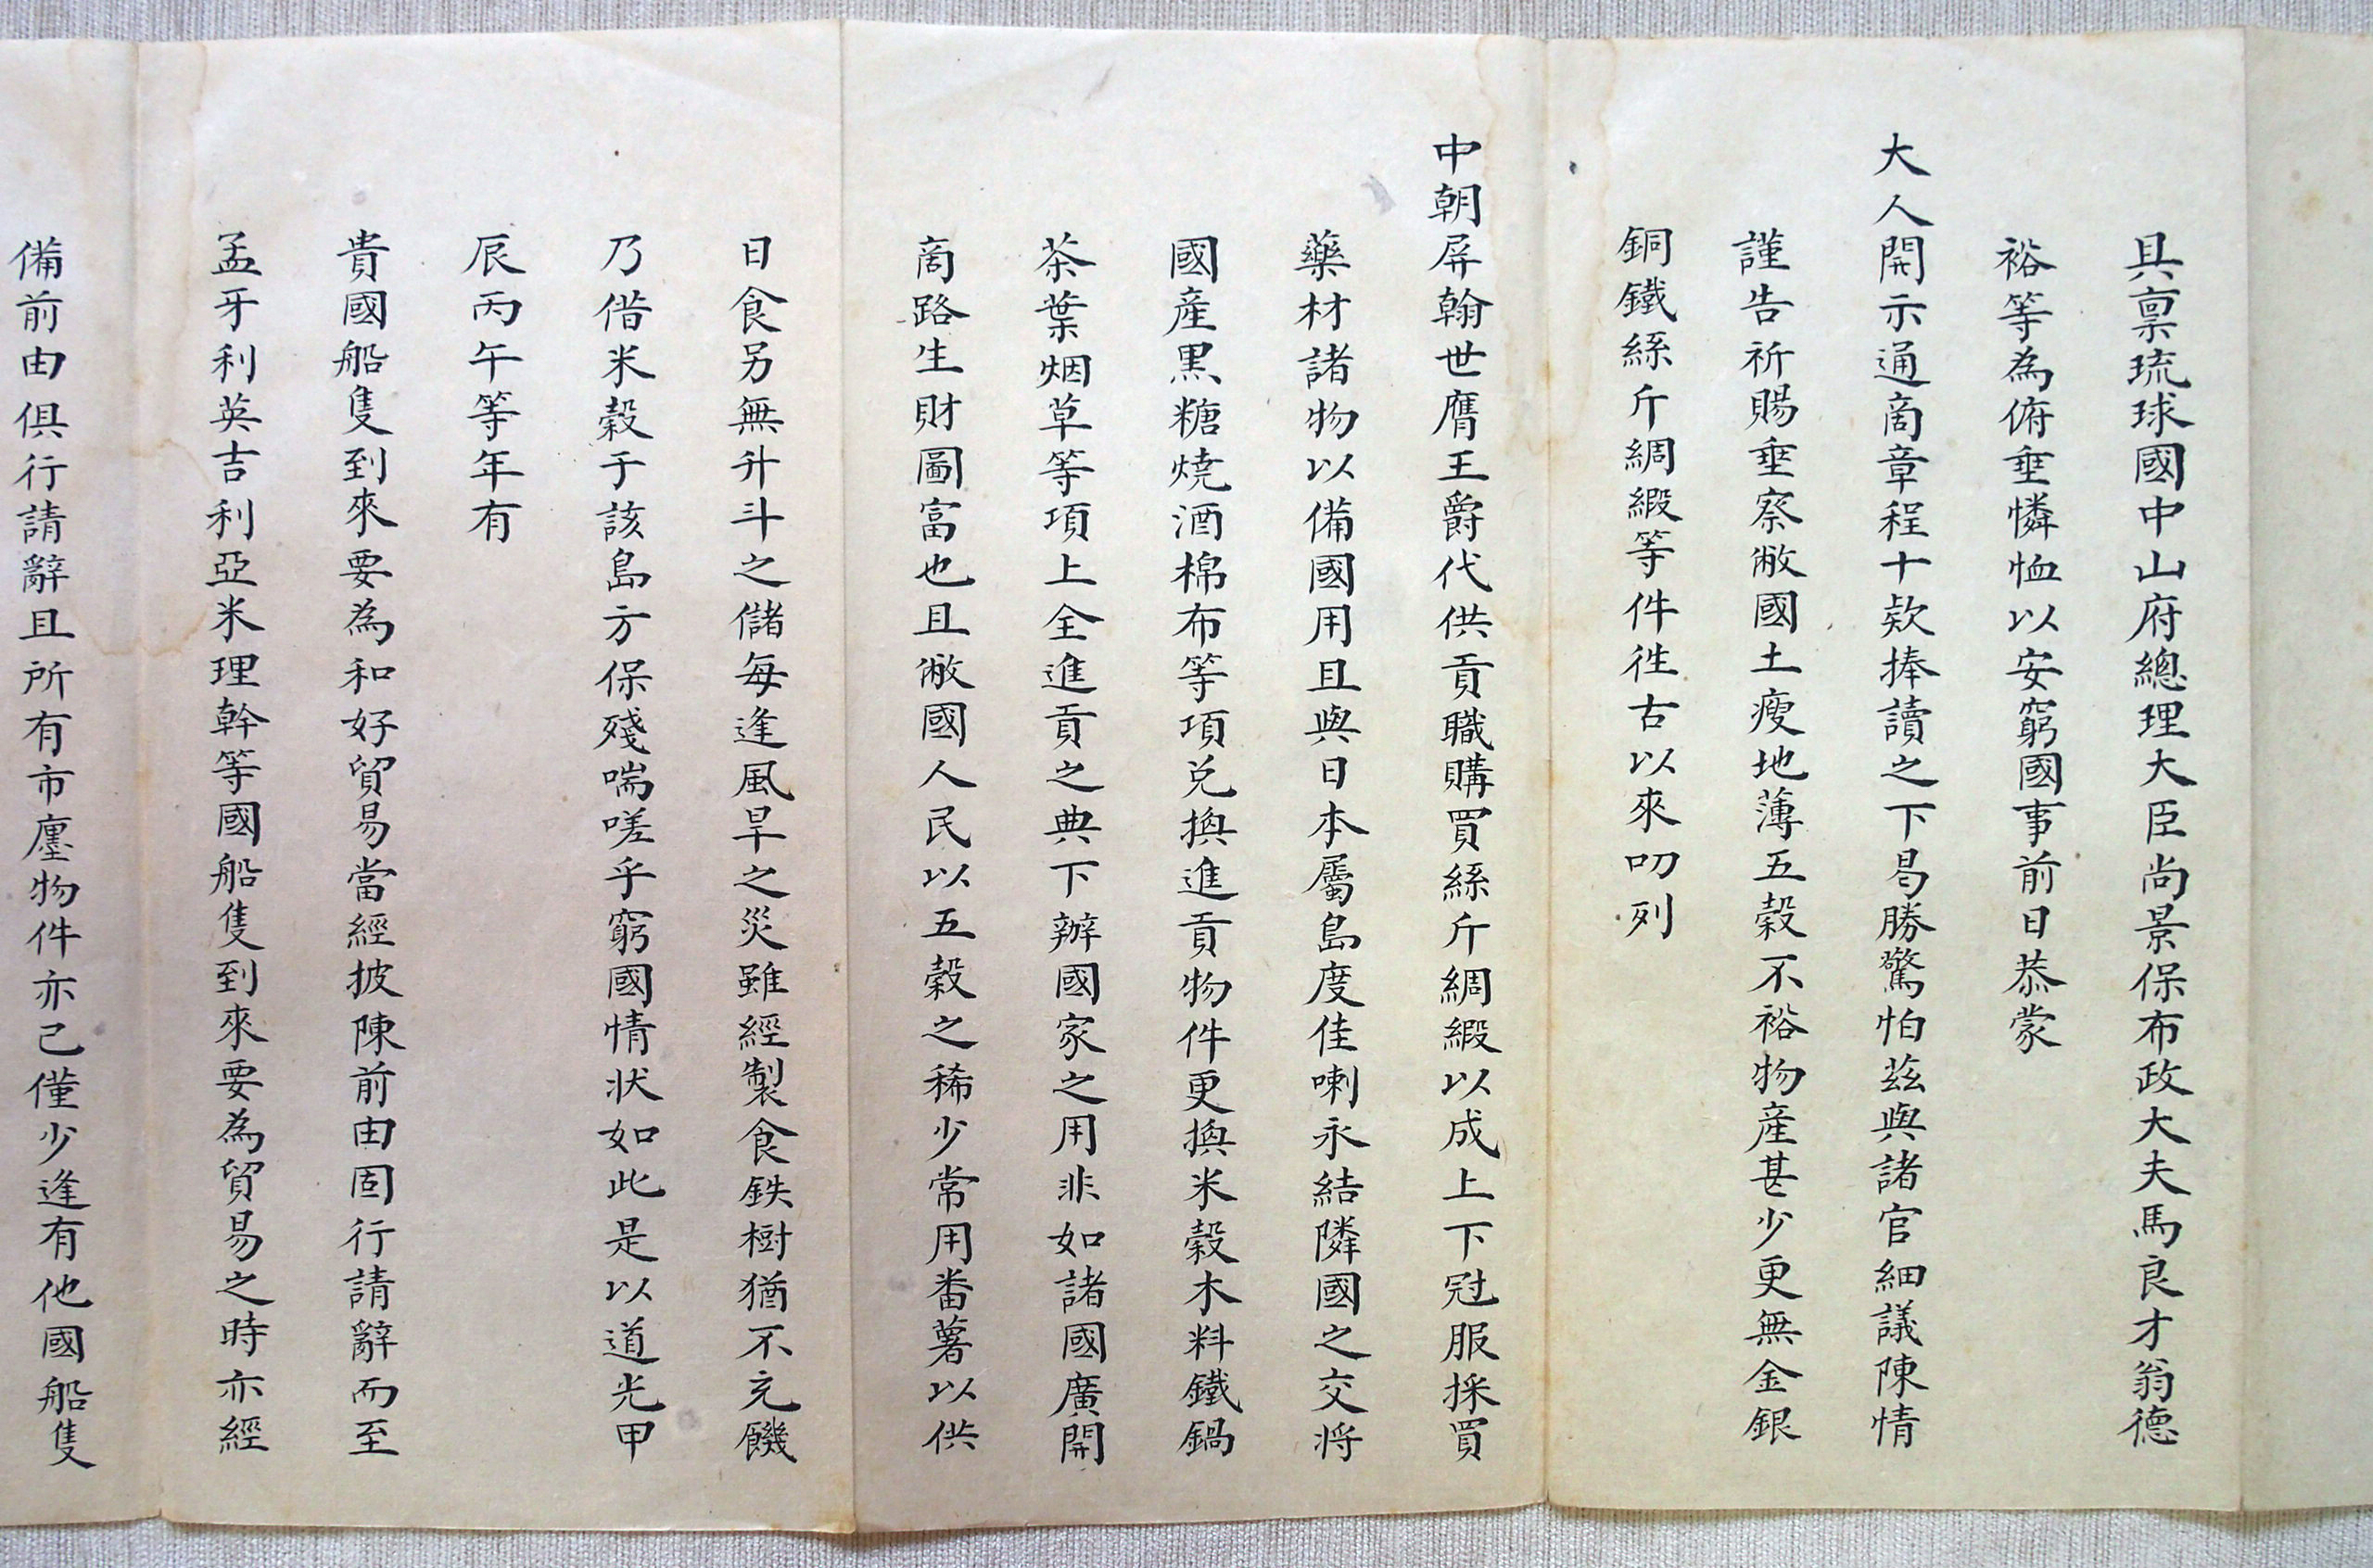 具禀琉球國中山府總理大臣尚景保布政大夫馬良才翁德
裕等為俯垂憐恤以安窮國事前日恭蒙
大人開示通商章程十款捧讀之下曷勝驚怕茲與諸官細議陳情
謹告祈賜垂察敝國土瘦地薄五穀不裕物產甚少更無金銀
銅鐵絲斤綢緞等件徃古以來叨列
中朝屏翰世膺王爵代供貢職購買絲斤綢緞以成上下冠服採買
藥材諸物以備國用且與日本屬島度佳喇永結隣國之交将
國產黒糖燒酒棉布等項兑換進貢物件更換米穀木料鐵鍋
茶葉烟草等項上全進貢之典下辦國家之用非如諸國廣開
商路生財圖富也且敝國人民以五穀之稀少常用番薯以供
日食另無升斗之儲每逢風旱之災雖經製食鉄樹猶不充饑
乃借米穀于該島方保殘喘嗟乎窮國情状如此是以道光甲
辰丙午等年有
貴國船隻到來要為和好貿易當經披陳前由固行請辭而至
孟牙利英吉利亞米理幹等國船隻到來要為貿易之時亦經
備前由俱行請辭且所有市廛物件亦已僅少逢有他國船隻